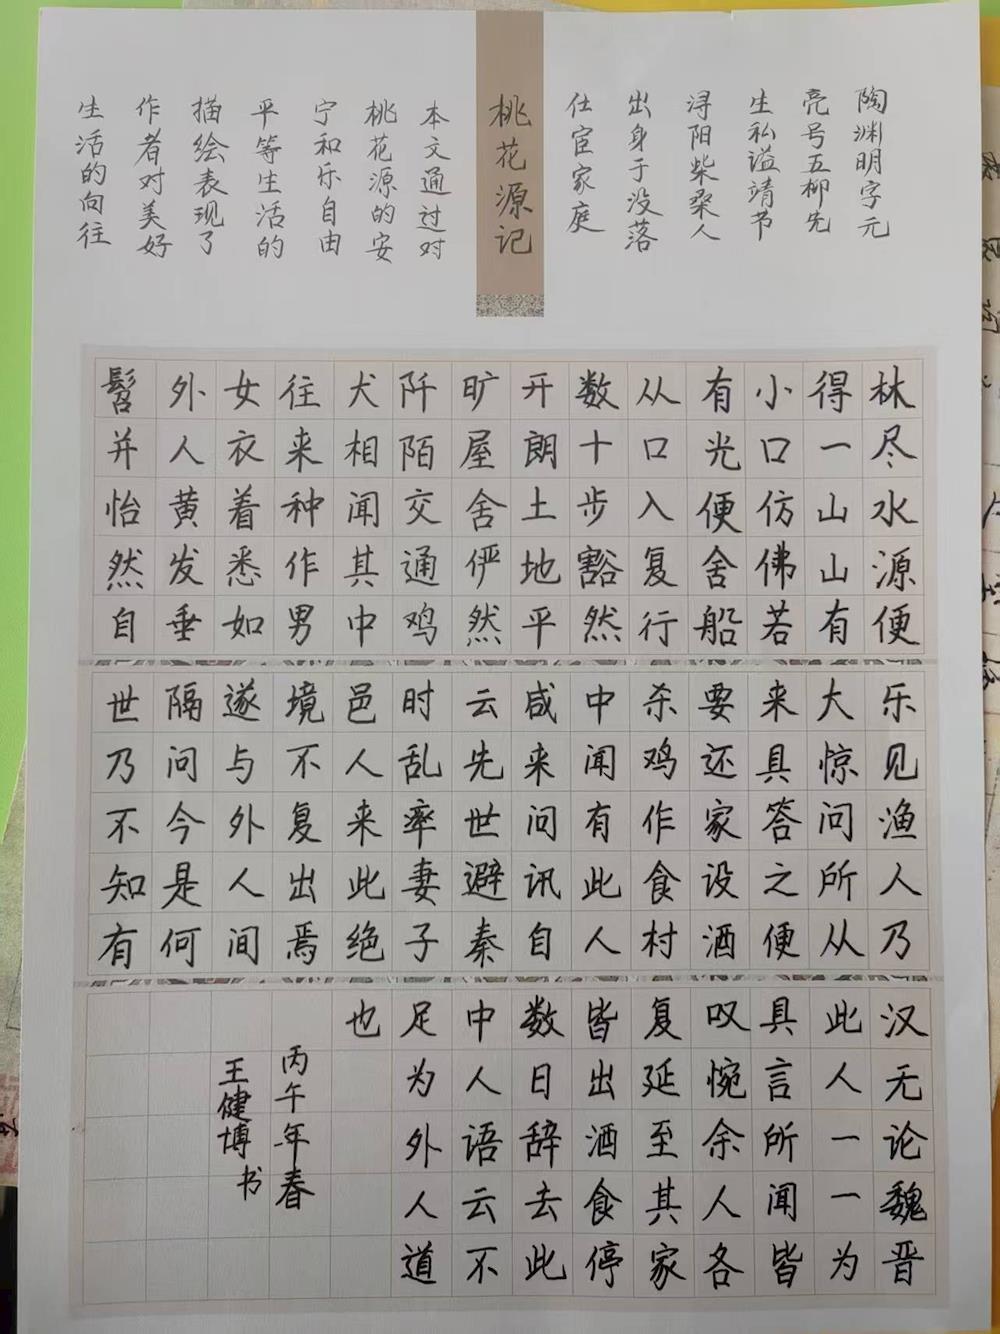 陶渊明字元
亮号五柳先
生私谥靖书
浔阳柴桑人
出身于没落
仕宦家庭
桃花源记
本文通过对
桃花源的安
宁和乐自由
平等生活的
描绘表现了
作者对美好
生活的向往
林尽水源便
得一山山有
小口仿佛若
有光便舍船
从口入复行
数十步豁然
开朗土地平
旷屋舍俨然
阡陌交通鸡
犬相闻其中
往来种作男
女衣着悉如
外人黄发垂
髫并怡然自
乐见渔人乃
大惊问所从
来具答之便
要还家设酒
杀鸡作食村
中闻有此人
咸来问讯自
云先世避秦
时乱率妻子
邑人来此绝
境不复出焉
遂与外人间
隔问今是何
世乃不知有
汉无论魏晋
此人一一为
具言所闻皆
叹惋余人各
复延至其家
皆出酒食停
数日辞去此
中人语云不
足为外人道
也
丙午年春
王健博书